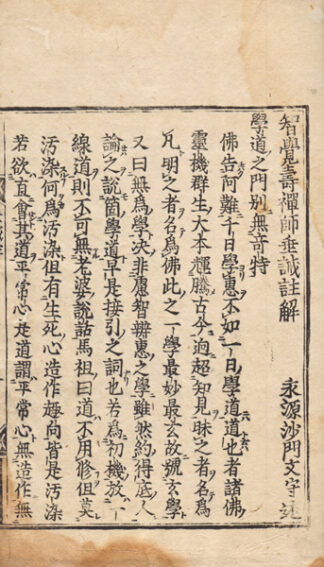 智覺壽禪師垂誡註解
永源沙門文守述
學道之門別無奇特
佛告阿難千日學惠不如一日學道道也者諸佛
靈機群生大本輝騰古今逈超知見昧之者名爲
凡明之者名爲佛此之一學最妙最玄故號玄學
又曰無爲學决非慮智辨惠之學雖然約得底人
論之說箇學道早是接引之詞也若爲初機放一
線道則不可無老婆說話馬祖曰道不用修但莫
汚染何爲汚染但有生死心造作趣向皆是汚染
若欲直會其道平常心是道謂平常心無造作無